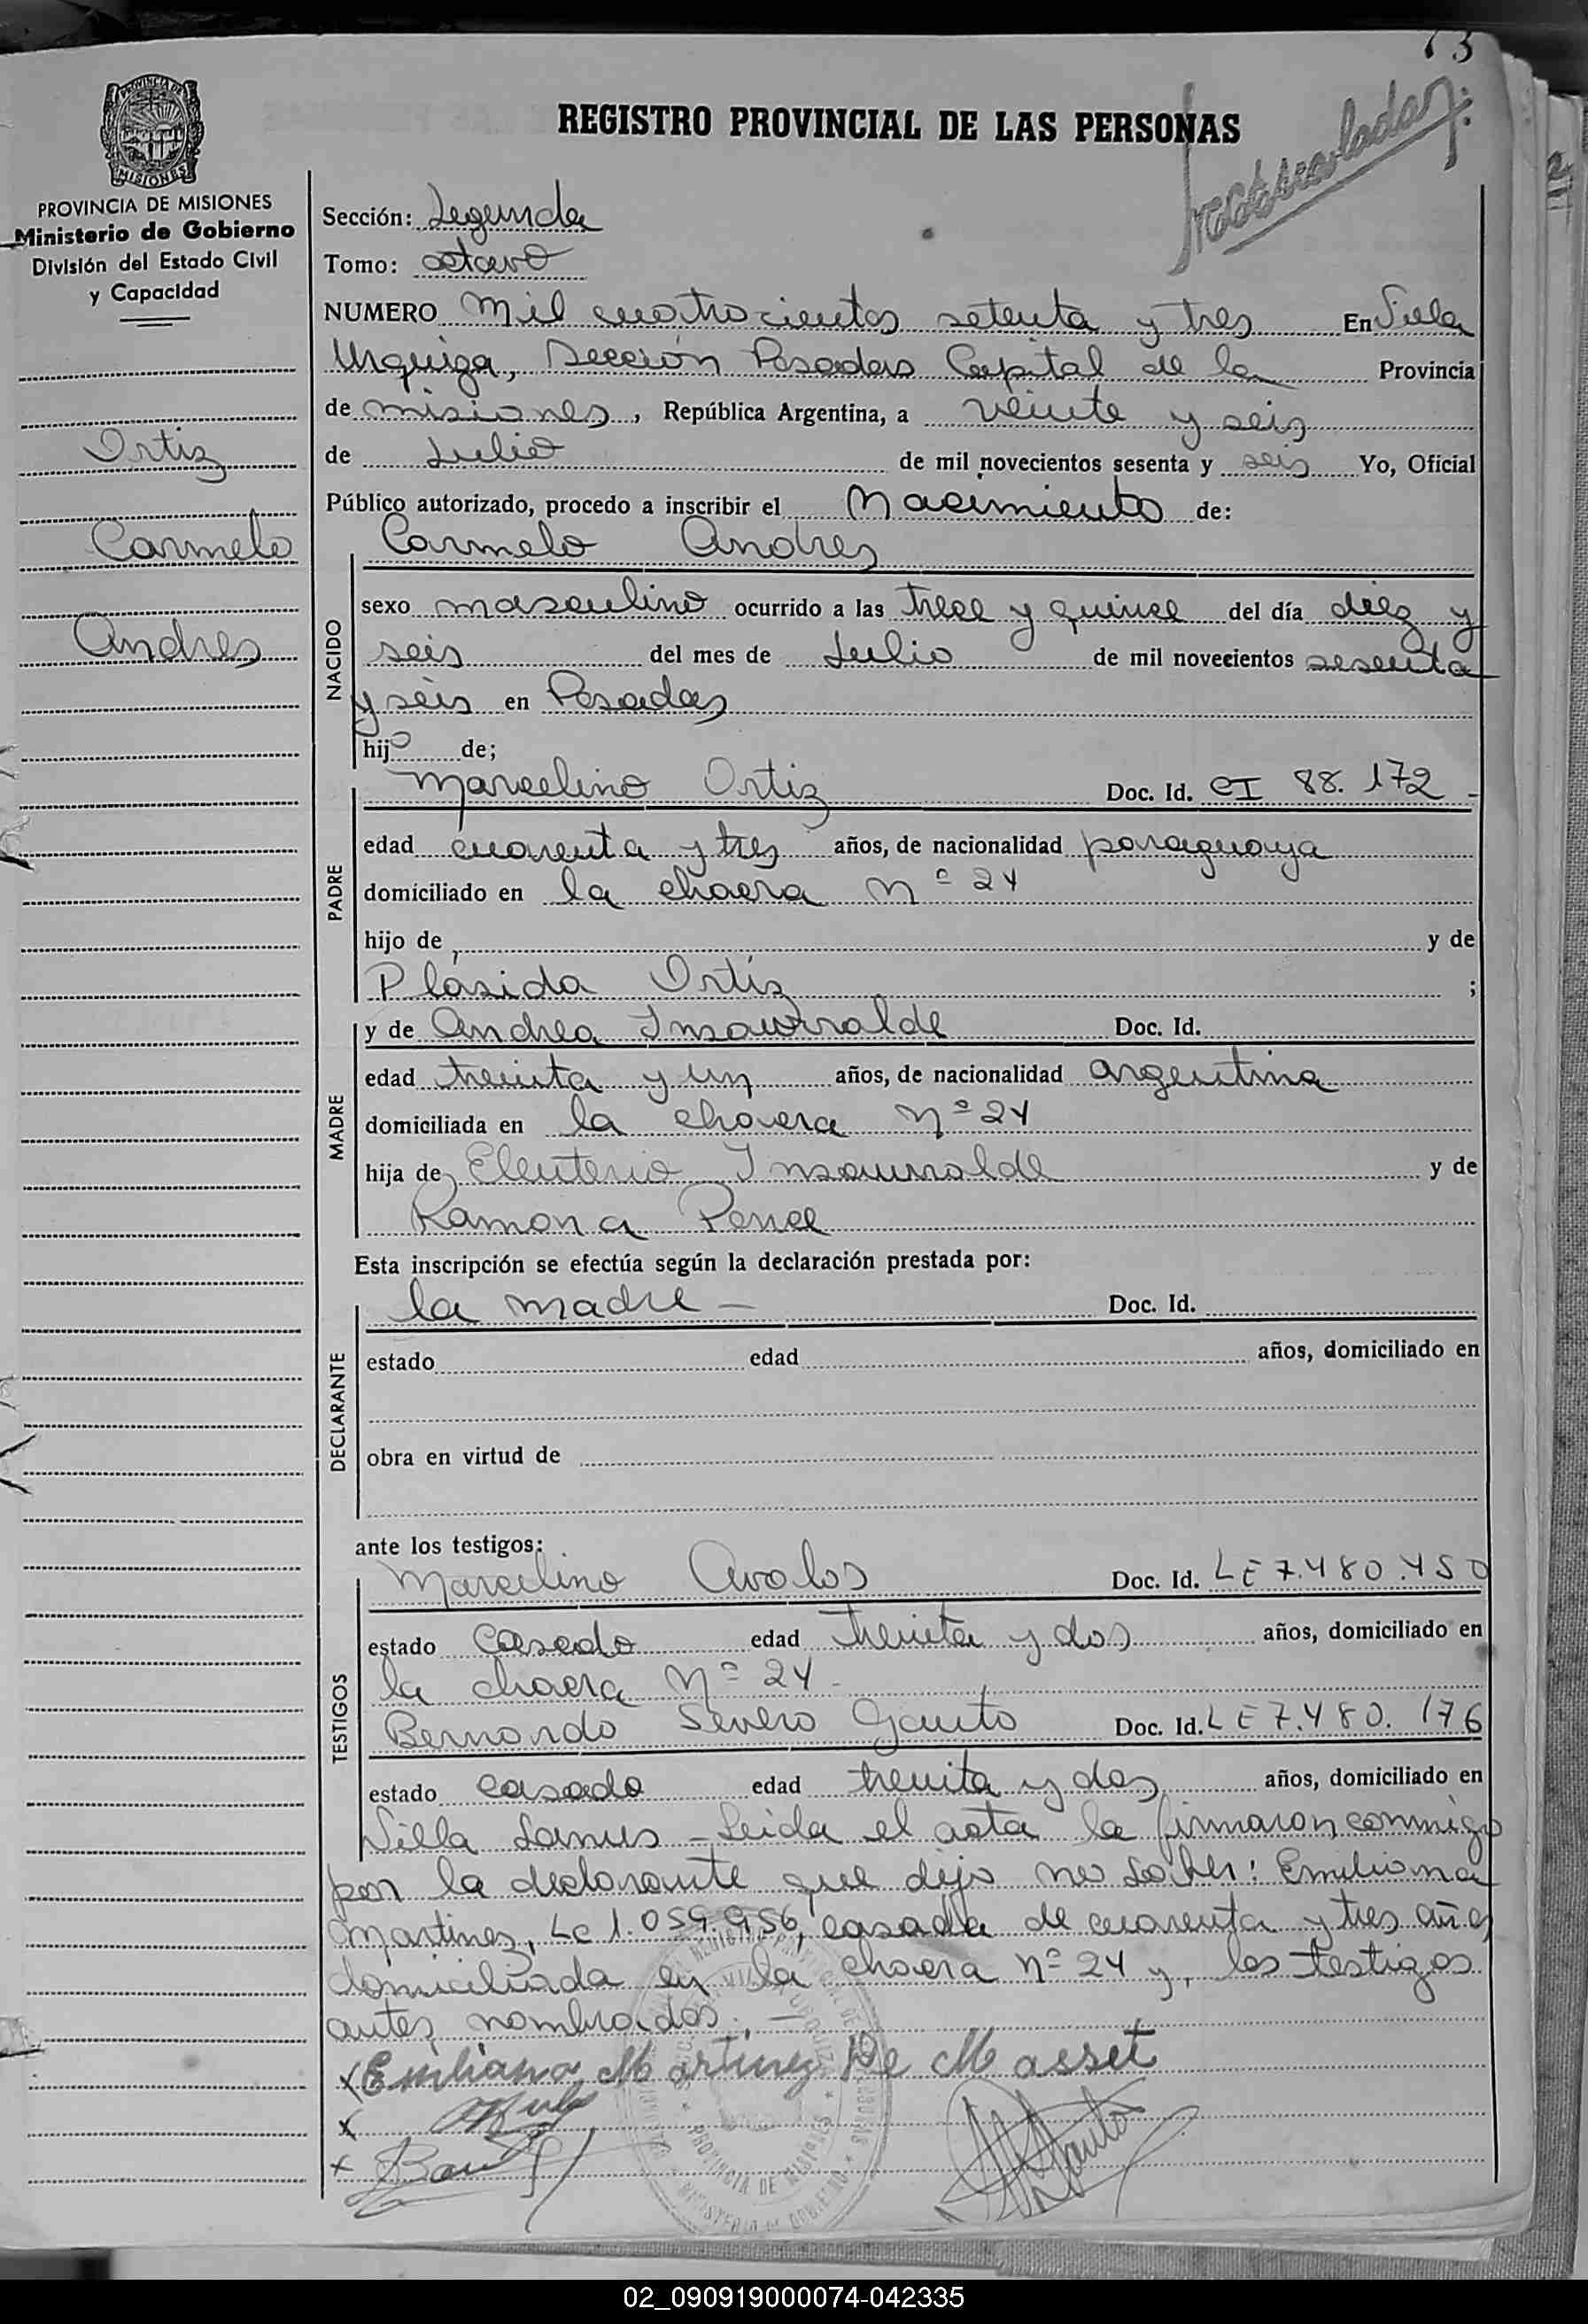 73
PROVINCIA DE
MISIONES
REGISTRO PROVINCIAL DE LAS PERSONAS
PROVINCIA DE MISIONES
Ministerio de Gobierno
División del Estado Civil
y Capacidad
Ortiz
Carmelo
Andres
Sección: Segunda
Tomo: octavo
NUMERO Mil cuatrocientos setenta y tres En Villa
Urquiza, Sección Posadas Capital de la Provincia
de misiones, República Argentina, a veinte y seis
de Julio de mil novecientos sesenta y seis Yo, Oficial
Público autorizado, procedo a inscribir el Nacimiento de:
Carmelo Andres
NACIDO
sexo masculino ocurrido a las trece y quince del día diez y
seis del mes de Julio de mil novecientos sesenta
y seis en Posadas
hijo de;
Marcelino Ortiz Doc. Id. CI 88.172 -
PADRE
edad cuarenta y tres años, de nacionalidad paraguaya
domiciliado en la chacra Nº 24
hijo de y de
Plásida Ortiz ;
y de Andrea Insaurralde Doc. Id.
MADRE
edad treinta y un años, de nacionalidad argentina
domiciliada en la chacra Nº 24
hija de Eleuterio Insaurralde y de
Ramona Ponce
Esta inscripción se efectúa según la declaración prestada por:
la madre - Doc. Id.
DECLARANTE
estado edad años, domiciliado en
obra en virtud de
ante los testigos:
Marcelino Avalos Doc. Id. LE 7.480.450
TESTIGOS
estado casado edad treinta y dos años, domiciliado en
la chacra Nº 24
Bernardo Severo Gauto Doc. Id. LE 7.480.176
estado casado edad treinta y dos años, domiciliado en
Villa Lanus - Leida el acta la firmaron conmigo
por la declarante que dijo no saber: Emiliana
Martinez, LC 1.059.956, casada de cuarenta y tres años
domiciliada en la chacra nº 24 y, los testigos
antes nombrados. -
x Emiliana Martinez De Masset
x
x
PROVINCIA DE MISIONES
02_090919000074-042335